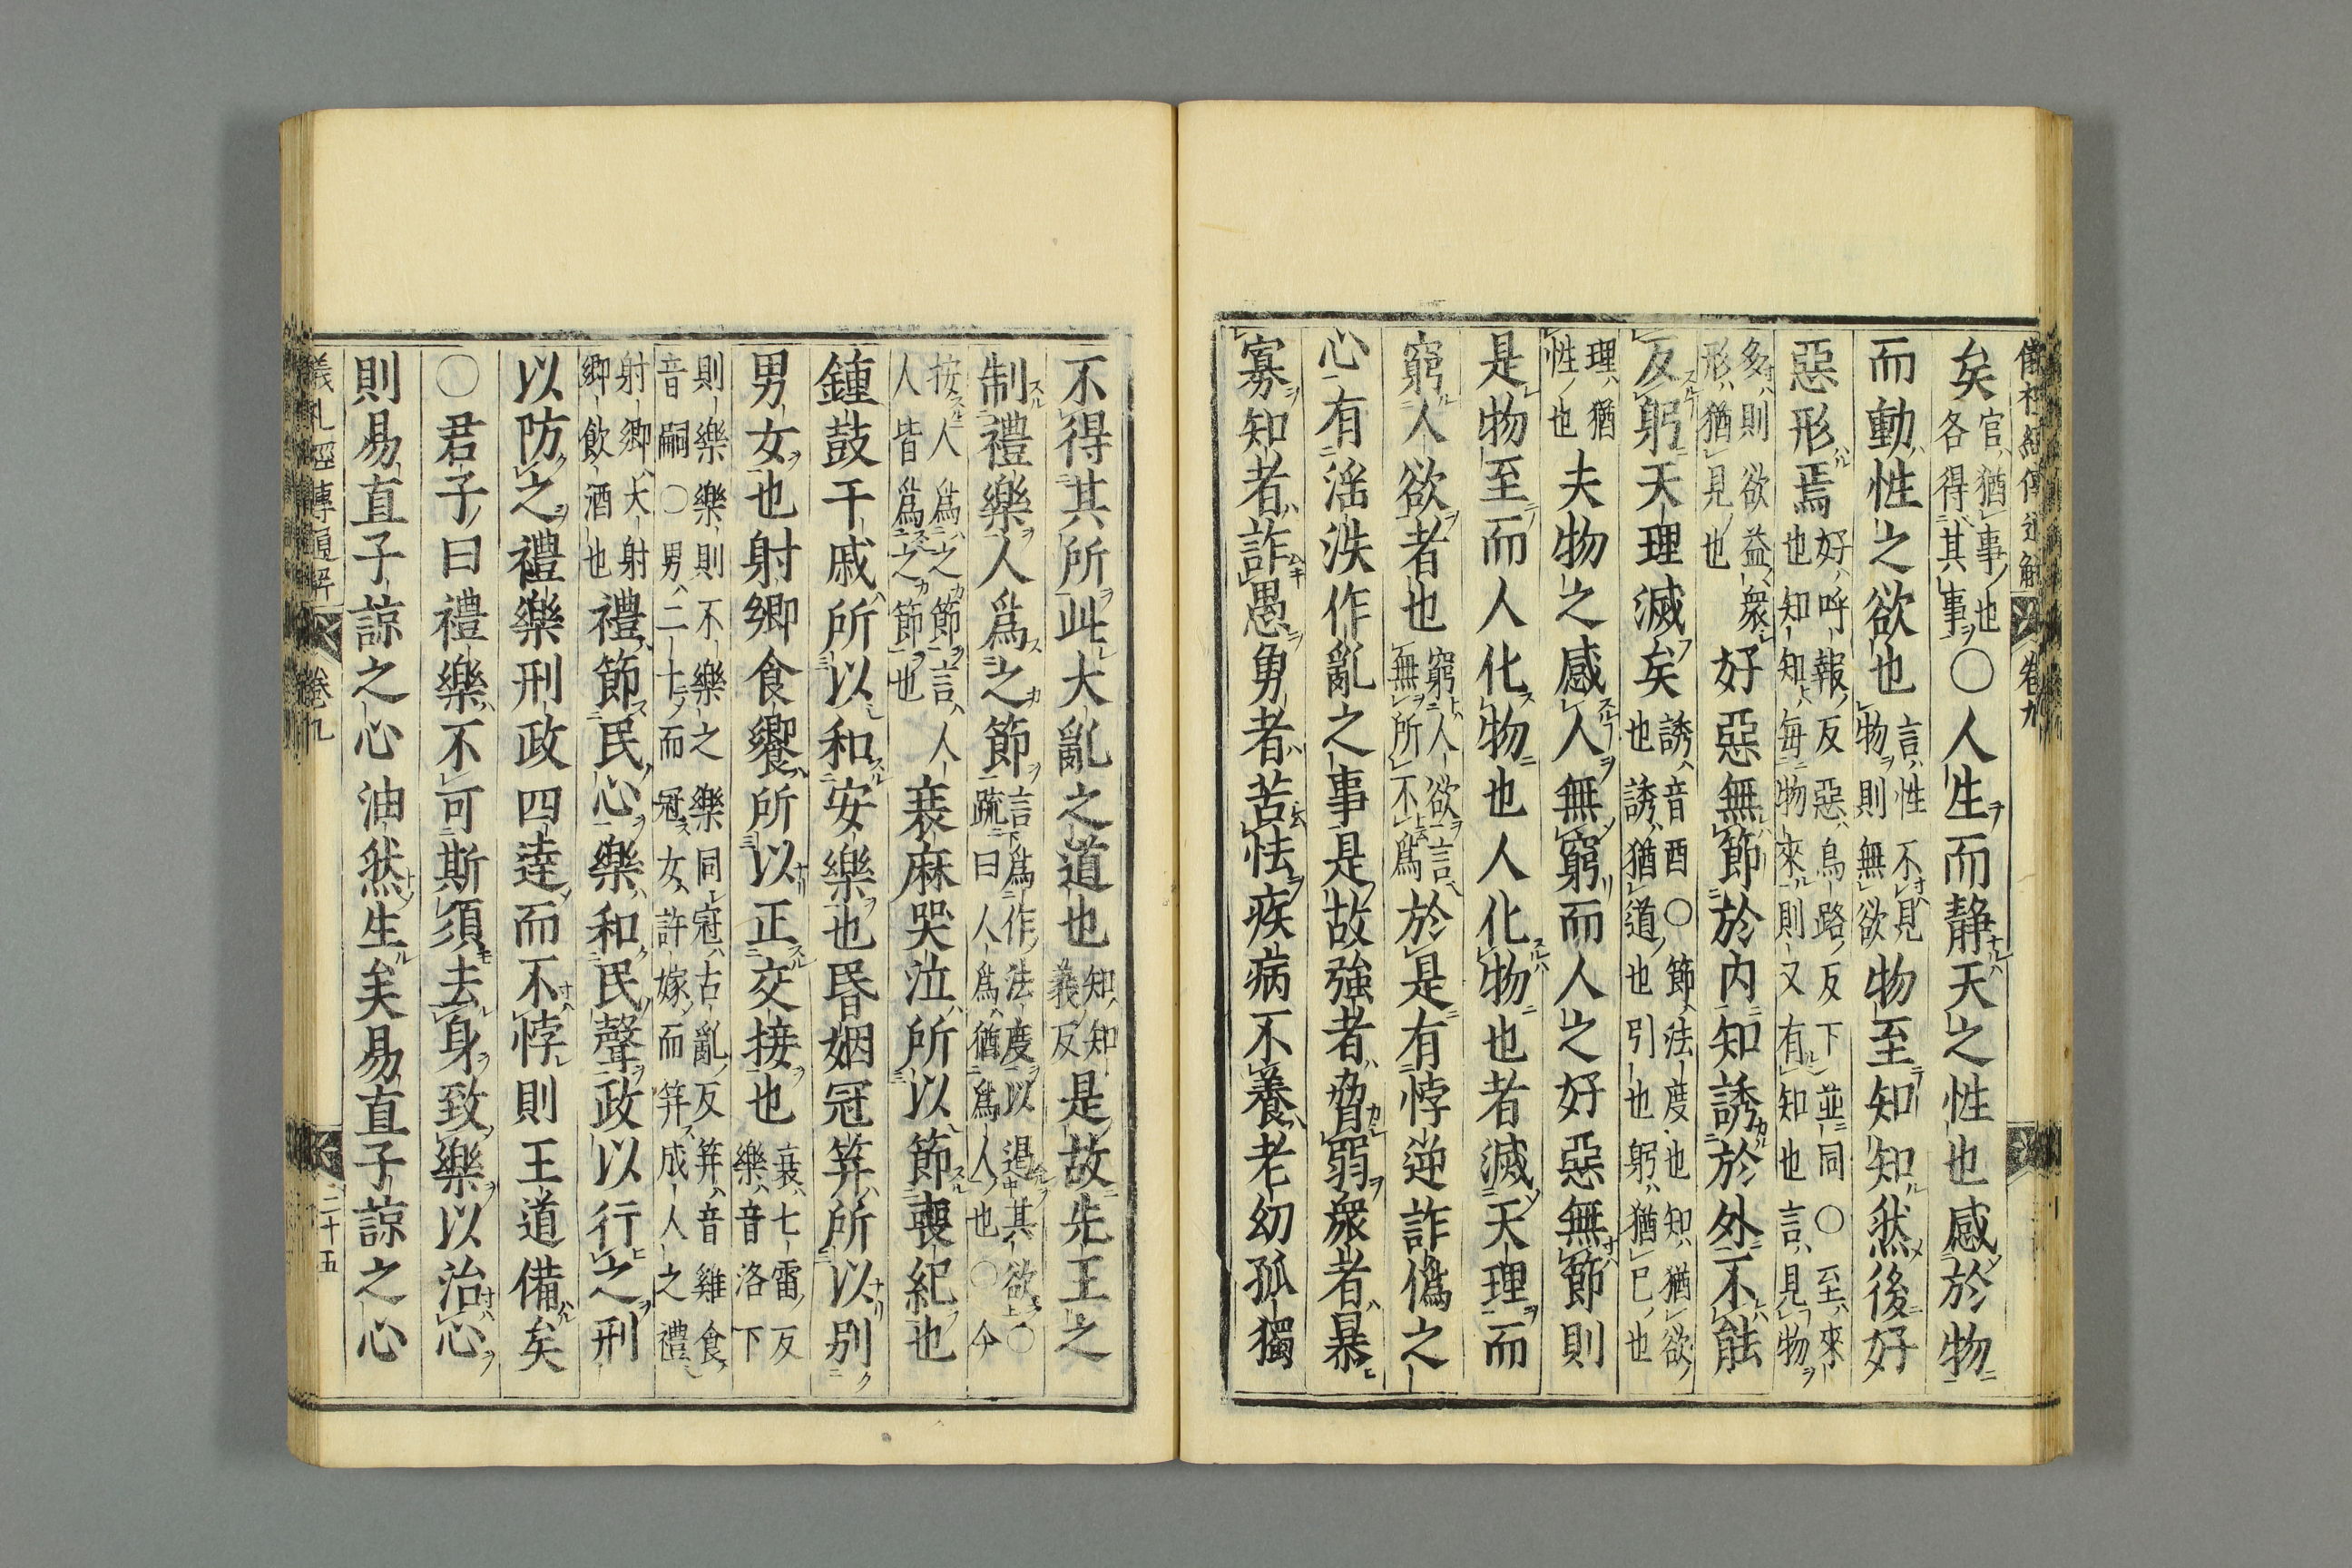 矣官猶事也各得其事〇人生而静天之性也感於物
而動性之欲也言性不見物則無欲物至知知然後好
惡形焉好呼報反惡烏路反下並同〇至來也知知每物來則又有知也言見物
多則欲益衆形猶見也好惡無節於内知誘於外不能
反躬天理滅矣誘音酉〇節法度也知猶欲也誘猶道也引也躬猶已也
理猶性也夫物之感人無窮而人之好惡無節則
是物至而人化物也人化物也者滅天理而
窮人欲者也窮人欲言無所不爲於是有悖逆詐僞之
心有淫泆作亂之事是故強者脅弱衆者暴
寡知者詐愚勇者苦怯疾病不養老幼孤獨
卷九
不得其所此大亂之道也知知義反是故先王之
制禮樂人爲之節言爲作法度以遏其欲〇疏曰人爲猶爲人也〇今
按人爲之節言人人皆爲之節也衰麻哭泣所以節喪紀也
鍾鼓干戚所以和安樂也昬姻冠笄所以别
男女也射鄉食饗所以正交接也衰七雷反樂音洛下
則樂樂則不樂之樂同冠古亂反笄音雞食音嗣〇男二十而冠女許嫁而笄成人之禮
射鄉大射鄉飲酒也禮節民心樂和民聲政以行之刑
以防之禮樂刑政四達而不悖則王道備矣
〇君子曰禮樂不可斯須去身致樂以治心
則易直子諒之心油然生矣易直子諒之心
儀礼經傳通解 卷九 二十五